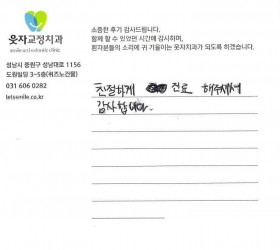 웃자교정치과
소중한 후기 감사드립니다.
함께 할 수 있었던 시간에 감사하며,
환자분들의 소리에 귀 기울이는 웃자치과가 되도록 하겠습니다.
성남시 중원구 성남대로 1156
도원빌딩 3~5층(위즈노건물)
031 606 0282
letssmile.co.kr
친절하게 진료 해주셔서
감사합니다.